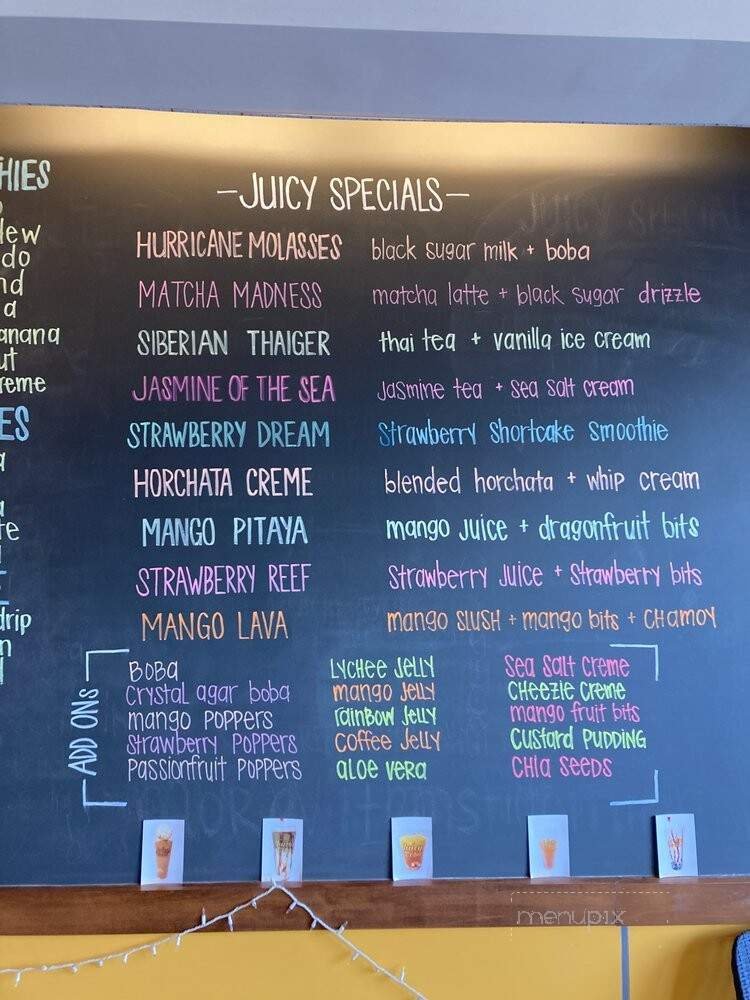 HIES
lew
do
nd
a
anana
ut
reme
ES
a
a
te
drip
n
-JUICY SPECIALS-
HURRICANE MOLASSES black sugar milk + boba
MATCHA MADNESS matcha latte + black sugar drizzle
SIBERIAN THAIGER thai tea + vanilla ice cream
JASMINE OF THE SEA Jasmine tea + sea salt cream
STRAWBERRY DREAM Strawberry Shortcake Smoothie
HORCHATA CREME blended horchata + whip cream
MANGO PITAYA mango juice + dragonfruit bits
STRAWBERRY REEF Strawberry Juice + Strawberry bits
MANGO LAVA mango SLUSH + mango bits + CHAMOY
ADD ONs
BOBA LYCHEE JELLY Sea Salt Creme
Crystal agar boba mango Jelly CHeezie Creme
mango POPPERS rainbow Jelly mango fruit bits
Strawberry POPPERS Coffee Jelly Custard PUDDING
Passionfruit Poppers aloe vera CHIA SeeDS
menupix